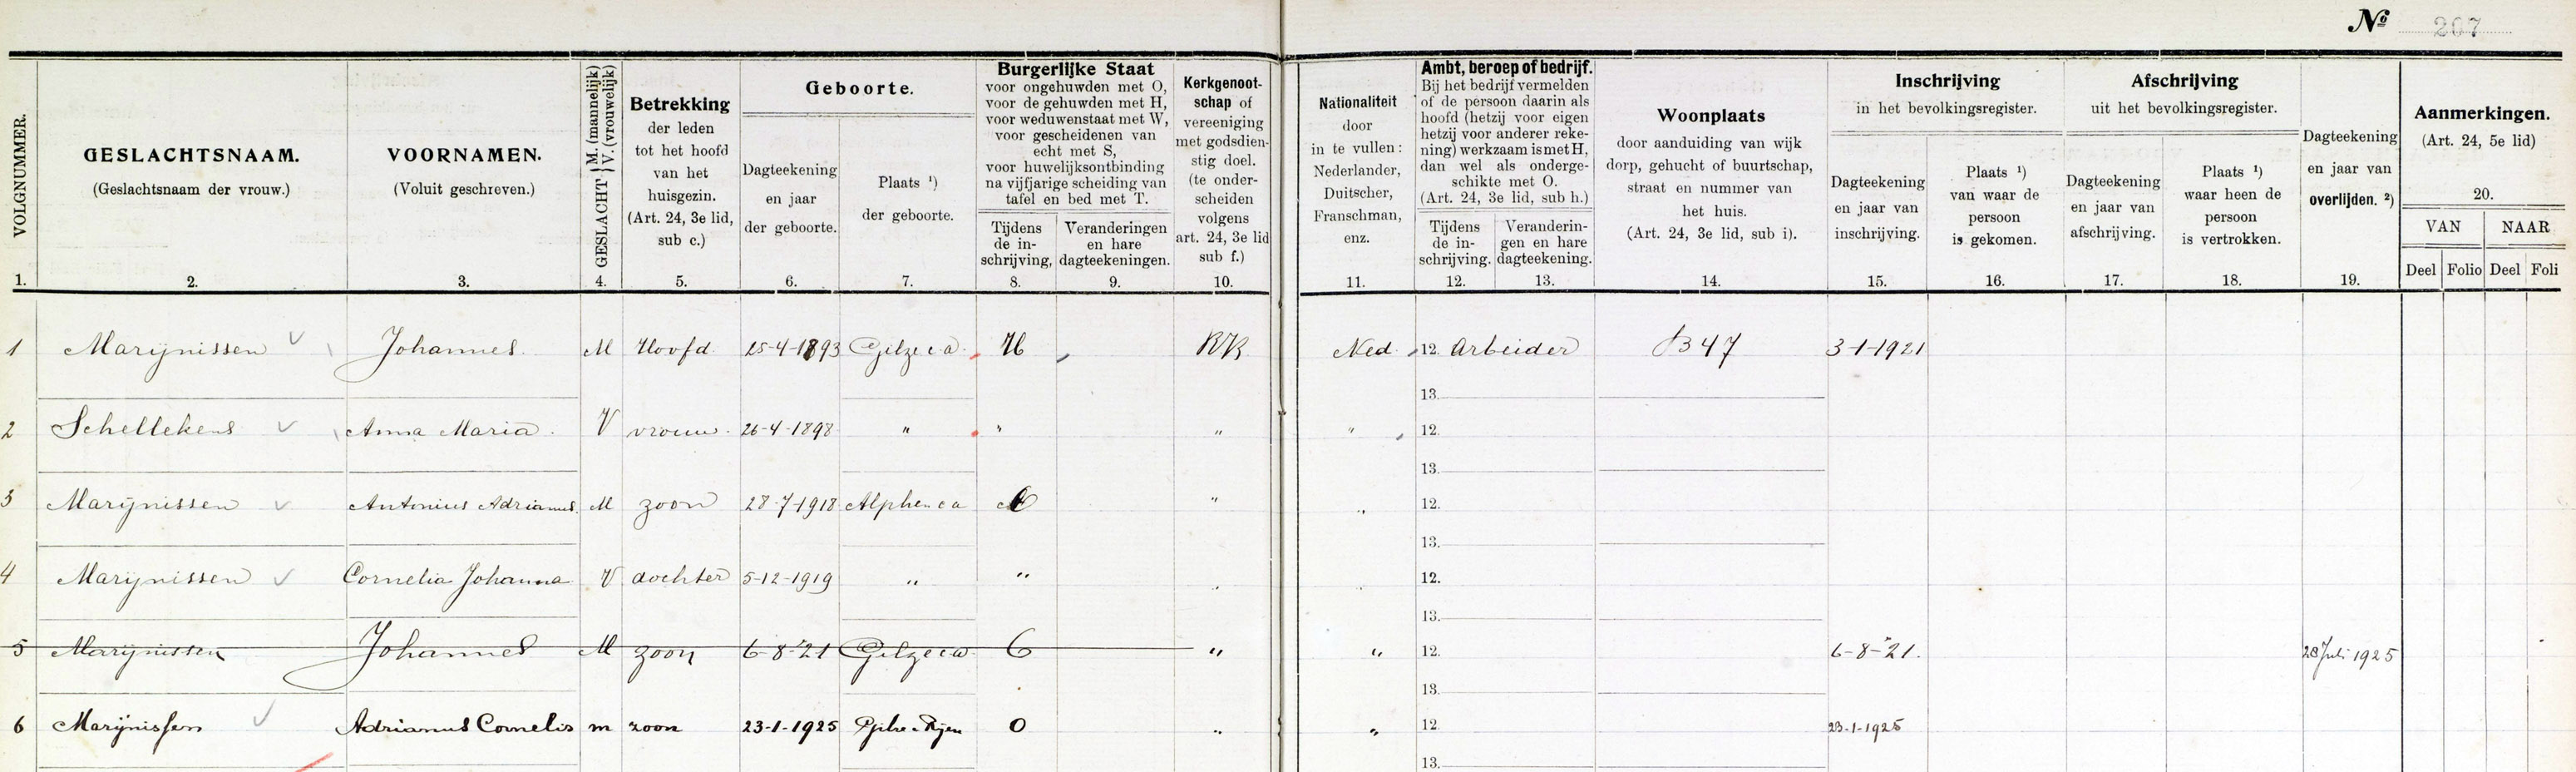 Nº 207
VOLGNUMMER.
1.
GESLACHTSNAAM.
(Geslachtsnaam der vrouw.)
2.
VOORNAMEN.
(Voluit geschreven.)
3.
GESLACHT M. (mannelijk) V. (vrouwelijk)
4.
Betrekking
der leden
tot het hoofd
van het
huisgezin.
(Art. 24, 3e lid,
sub c.)
5.
Geboorte.
Dagteekening
en jaar
der geboorte.
6.
Plaats ¹)
der geboorte.
7.
Burgerlijke Staat
voor ongehuwden met O,
voor de gehuwden met H,
voor weduwenstaat met W,
voor gescheidenen van
echt met S,
voor huwelijksontbinding
na vijfjarige scheiding van
tafel en bed met T.
Tijdens
de in-
schrijving,
8.
Veranderingen
en hare
dagteekeningen.
9.
Kerkgenoot-
schap of
vereeniging
met godsdien-
stig doel.
(te onder-
scheiden
volgens
art. 24, 3e lid
sub f.)
10.
Nationaliteit
door
in te vullen:
Nederlander,
Duitscher,
Franschman,
enz.
11.
Ambt, beroep of bedrijf.
Bij het bedrijf vermelden
of de persoon daarin als
hoofd (hetzij voor eigen
hetzij voor anderer reke-
ning) werkzaam is met H,
dan wel als onderge-
schikte met O.
(Art. 24, 3e lid, sub h.)
Tijdens
de in-
schrijving.
12.
Veranderin-
gen en hare
dagteekening.
13.
Woonplaats
door aanduiding van wijk
dorp, gehucht of buurtschap,
straat en nummer van
het huis.
(Art. 24, 3e lid, sub i).
14.
Inschrijving
in het bevolkingsregister.
Dagteekening
en jaar van
inschrijving.
15.
Plaats ¹)
van waar de
persoon
is gekomen.
16.
Afschrijving
uit het bevolkingsregister.
Dagteekening
en jaar van
afschrijving.
17.
Plaats ¹)
waar heen de
persoon
is vertrokken.
18.
Dagteekening
en jaar van
overlijden. ²)
19.
Aanmerkingen.
(Art. 24, 5e lid)
20.
VAN NAAR
Deel Folio Deel Foli
1 Marijnissen Johannes. M Hoofd. 25-4-1893 Gilze c.a. H RK Ned. 12. Arbeider B 47 3-1-1921
13.
2 Schellekens Anna Maria. V vrouw. 26-4-1898 " " " " 12.
13.
3 Marijnissen Antonius Adrianus. M zoon 28-7-1918 Alphen ca " " 12.
13.
4 Marijnissen Cornelia Johanna V dochter 5-12-1919 " " " " 12.
13.
5 Marijnissen Johannes M zoon 6-8-'21 Gilze ca. O " " 12. 6-8-'21. 28 Juli 1925
13.
6 Marijnissen Adrianus Cornelis m zoon 23-1-1925 Gilze-Rijen O " " 12. 23-1-1925
13.